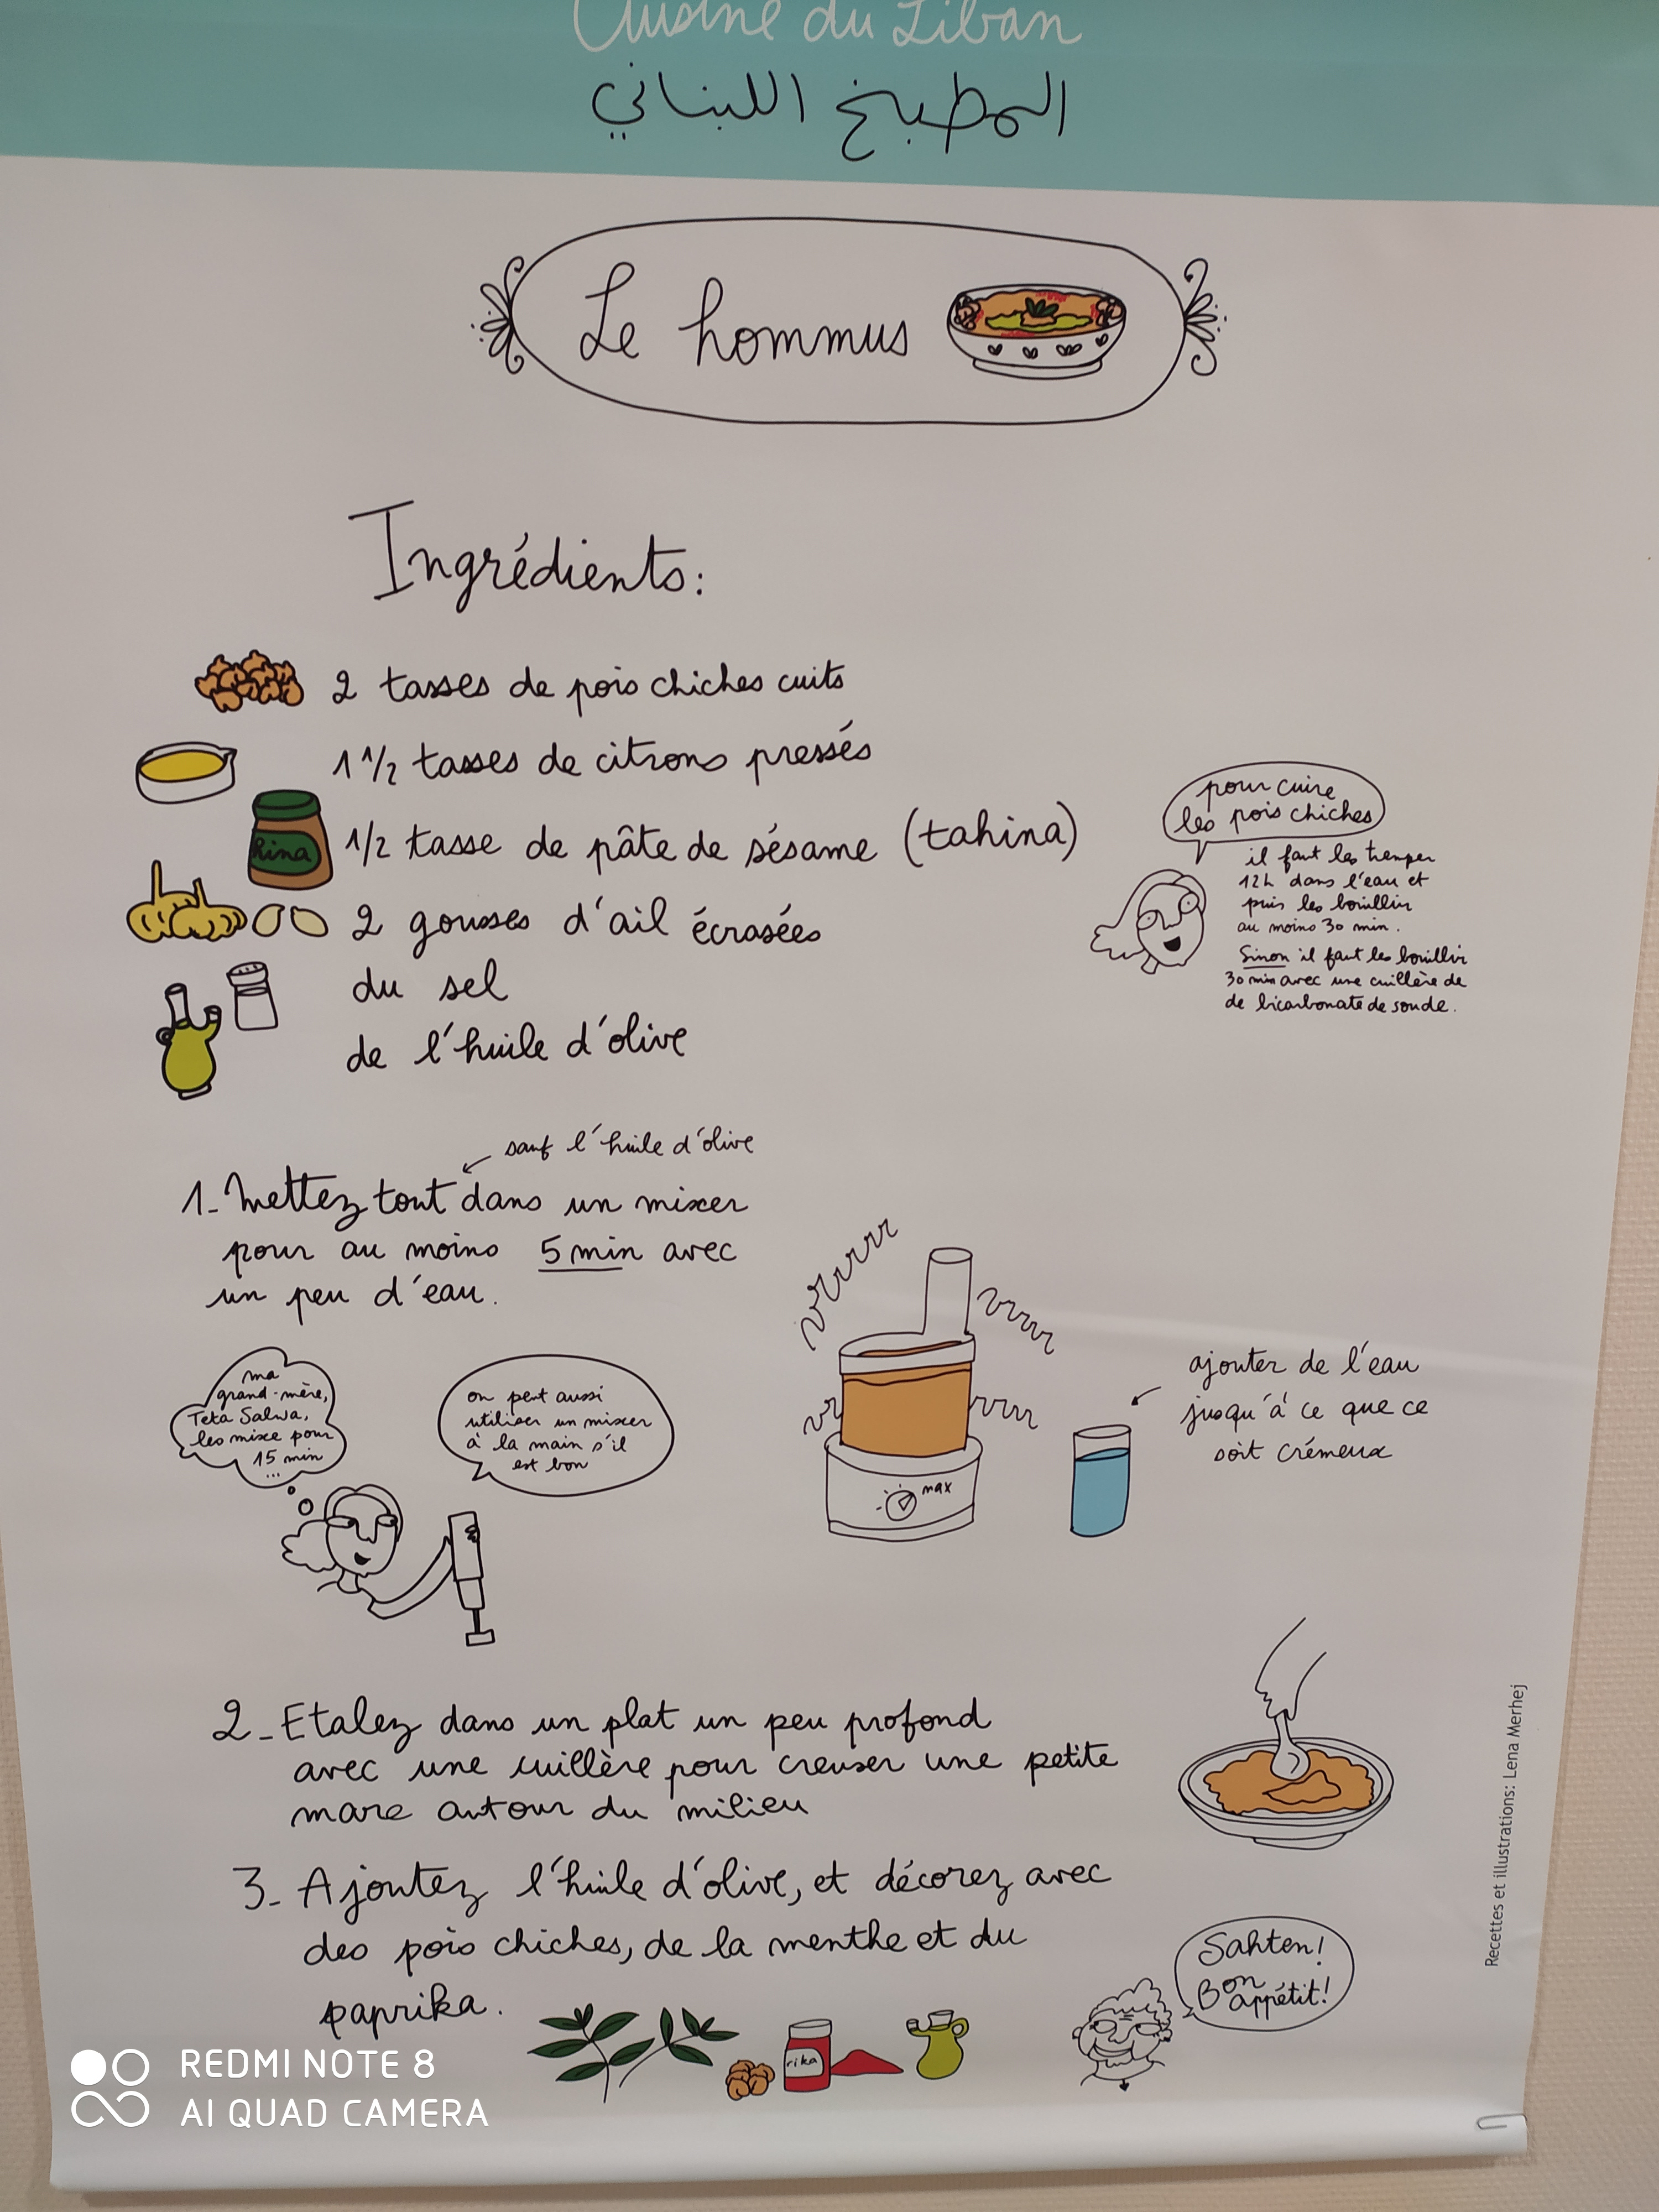 Cuisine du Liban
المطبخ اللبناني
Le hommus
Ingrédients:
2 tasses de pois chiches cuits
1 1/2 tasses de citrons pressés
hina
1/2 tasse de pâte de sésame (tahina)
2 gousses d'ail écrasées
du sel
de l'huile d'olive
pour cuire
les pois chiches
il faut les tremper
12h dans l'eau et
puis les bouillir
au moins 30 min.
Sinon il faut les bouillir
30 min avec une cuillère de
de bicarbonate de soude.
sauf l'huile d'olive
1- Mettez tout dans un mixer
pour au moins 5 min avec
un peu d'eau.
ma
grand-mère,
Teta Salwa,
les mixe pour
15 min
...
on peut aussi
utiliser un mixer
à la main s'il
est bon
vrrrrr
vrrrr
vr
vrrr
max
ajouter de l'eau
jusqu'à ce que ce
soit crémeux
2- Etalez dans un plat un peu profond
avec une cuillère pour creuser une petite
mare autour du milieu
3- Ajoutez l'huile d'olive, et décorez avec
des pois chiches, de la menthe et du
paprika.
rika
Sahten!
Bon
appétit!
Recettes et illustrations: Lena Merhej
REDMI NOTE 8
AI QUAD CAMERA